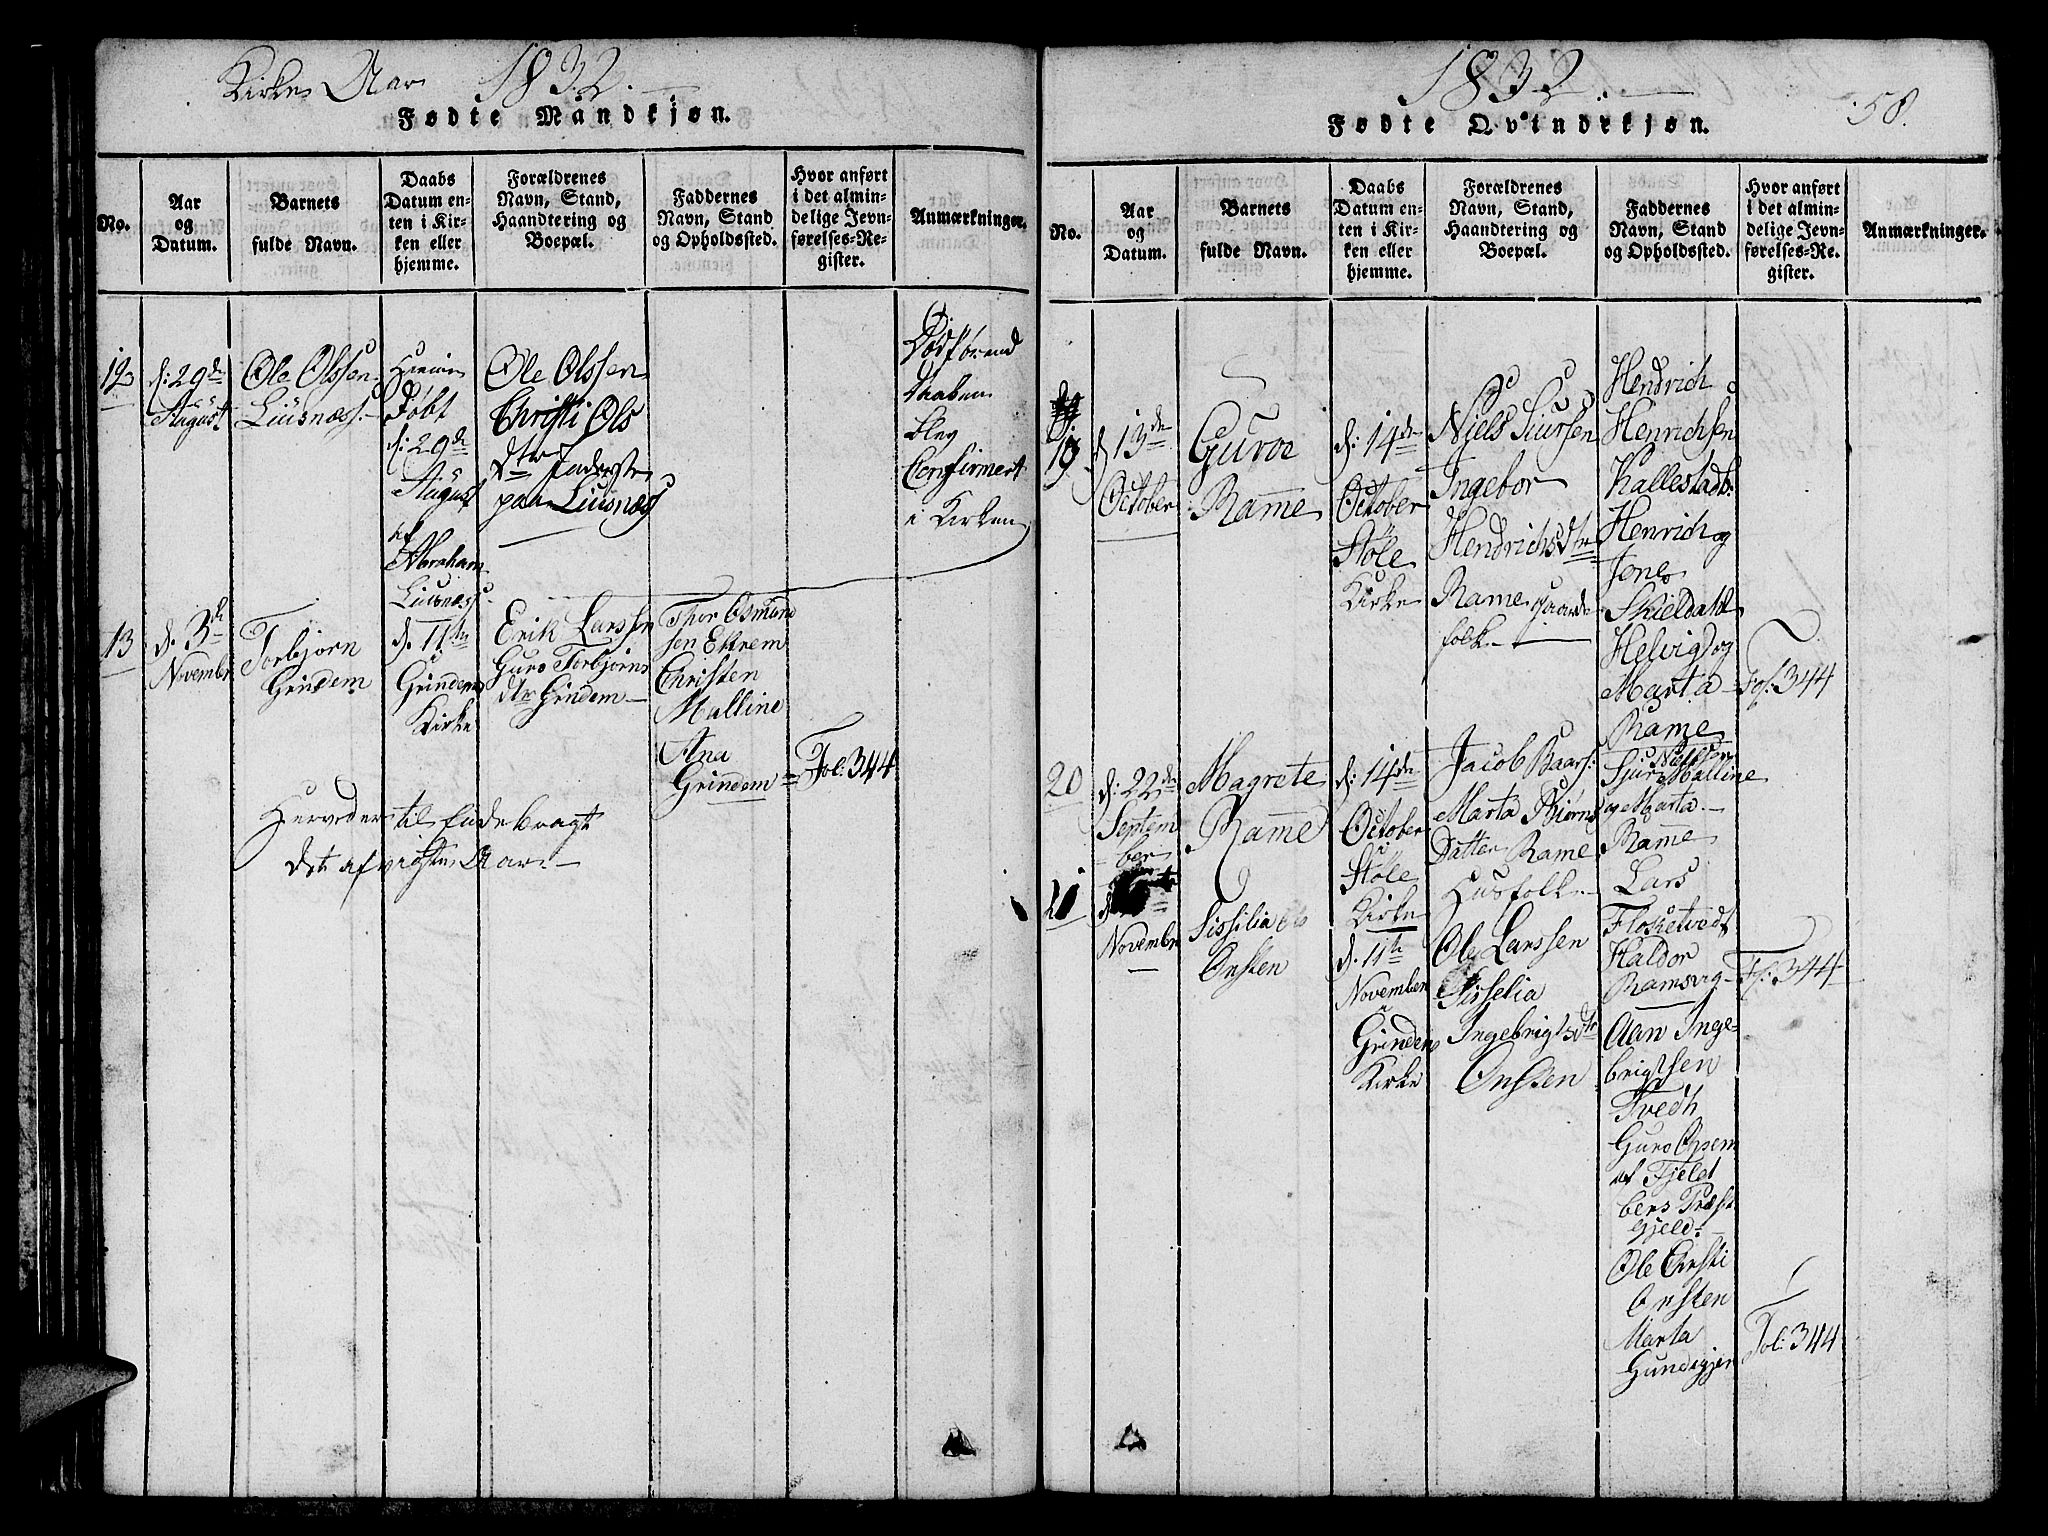 Kirke Aar 1832.
Fødte Mandkjøn.
No.
Aar
og
Datum.
Barnets
fulde Navn.
Daabs
Datum en-
ten i Kir-
ken eller
hjemme.
Forældrenes
Navn, Stand,
Haandtering og
Boepæl.
Faddernes
Navn, Stand
og Opholdssted.
Hvor anført
i det almin-
delige Jevn-
førelses-Re-
gister.
Anmærkninger.
12
d: 29de
August
Ole Olssen
Liusnæs.
Hieme
Døbt
d: 29de
August
af
Abraham
Liusnæs
Ole Olssen
Christi Ols
Dtr
paa Liusnæs
Daaben
blev
Confirmert
i Kirken
13
d. 3de
Novembr
Torbjørn
Grindem
d. 11te
i
Grindem
Kirke
Erik Larssen
Guro Torbjørns
dtr Grindem
Thor Osmund
sen Ekrem
Christen
Malline
Ana
Grindem
Fol: 344
Herved er til Ende bragt
det afvigte Aar.
1832.
58.
Fødte Qvindekjøn.
No.
Aar
og
Datum.
Barnets
fulde Navn.
Daabs
Datum en-
ten i Kir-
ken eller
hjemme.
Forældrenes
Navn, Stand,
Haandtering og
Boepæl.
Faddernes
Navn, Stand
og Opholdssted.
Hvor anført
i det almin-
delige Jevn-
førelses-Re-
gister.
Anmærkninger.
19
d 13de
October
Guroe
Rame
d: 14de
October
i
Støle
Kirke
Niels Siursen
Ingebor
Hendrichsdtr
Rame gaarde
folk
Hendrich
Henrichsen
Kallestadb:
Henrich og
Jone
Skieldahl
Helvig og
Marta
Rame
Fol: 344
20
d: 22de
Septem
ber
Magrete
Rame
d: 14de
October
i
Støle
Kirke
Jacob Baars:
Marta Biørns
Datter Rame
Husfolk
Nielsen
Sjur Malline
og Marta
Rame
Lars
Flosketvedt
Haldor
Ramsvig
Fol: 344
21
Novembr
Sissilia
Onsten
d. 11te
November
i
Grindem
Kirke
Ole Larssen
Sisselia
Ingebrigtsdtr
Onsten
Aan Inge-
brigtsen
Tvedt
Guro Opsem
af Fjeld
bers Præste
gjeld
Ole Christi
Onsten
Marta
Gundegjer
Fol: 344